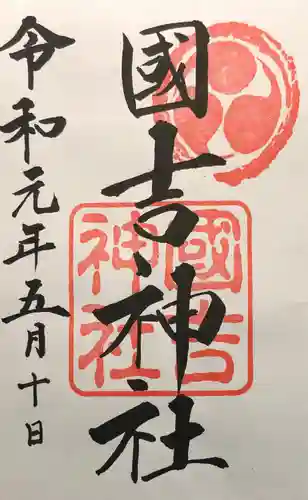 國吉神社
國吉神社
令和元年五月十日